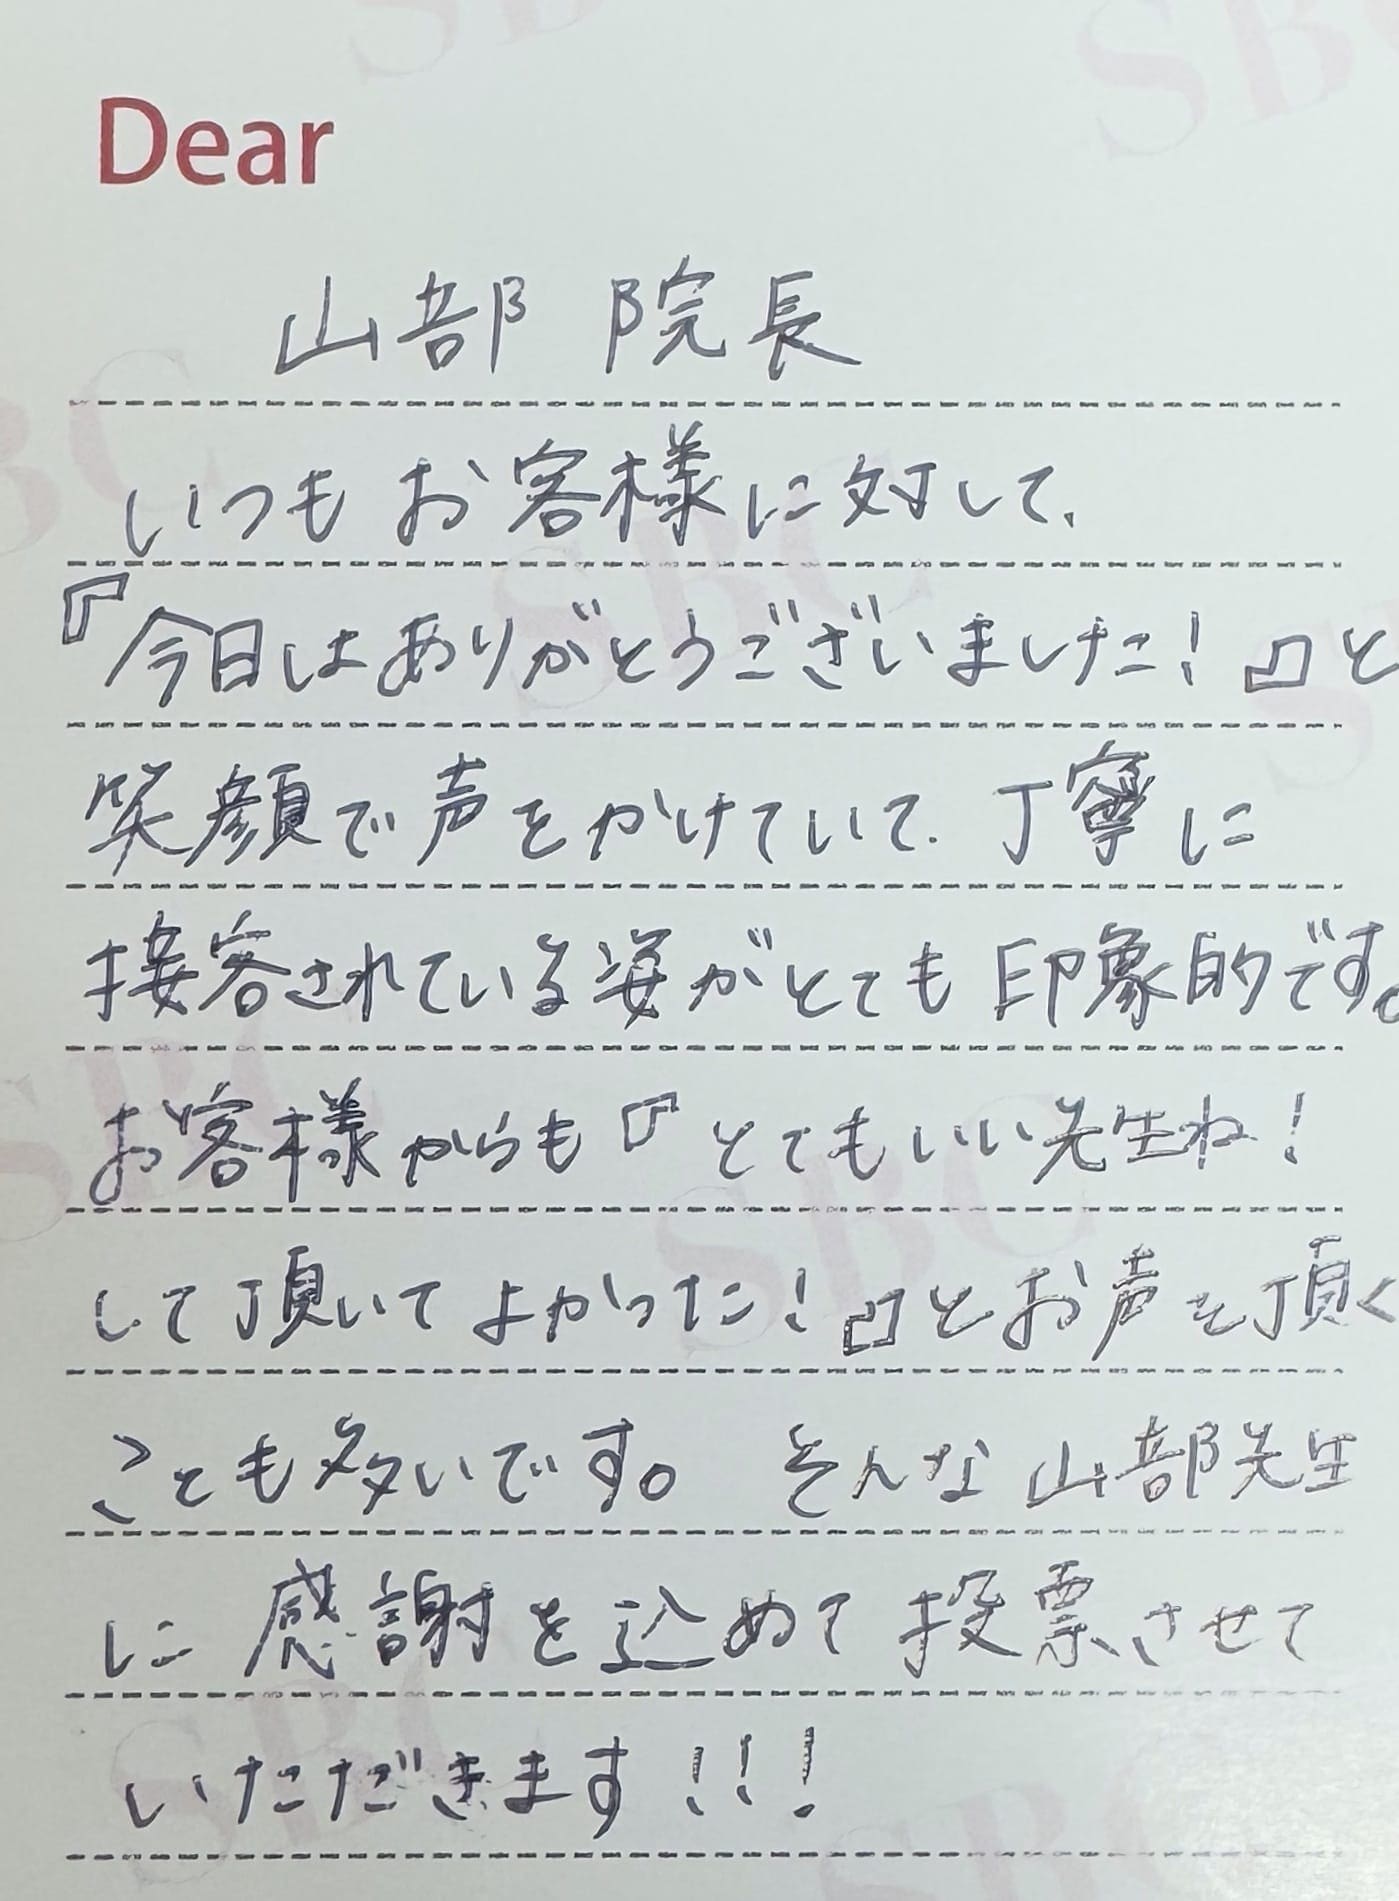 Dear
山部 院長
いつもお客様に対して、
『今日はありがとうございました！』と
笑顔で声をかけていて、丁寧に
接客されている姿がとても印象的です。
お客様からも『とてもいい先生ね！
して頂いてよかった！』とお声を頂く
ことも多いです。 そんな山部先生
に感謝を込めて投票させて
いただきます！！！
SBC